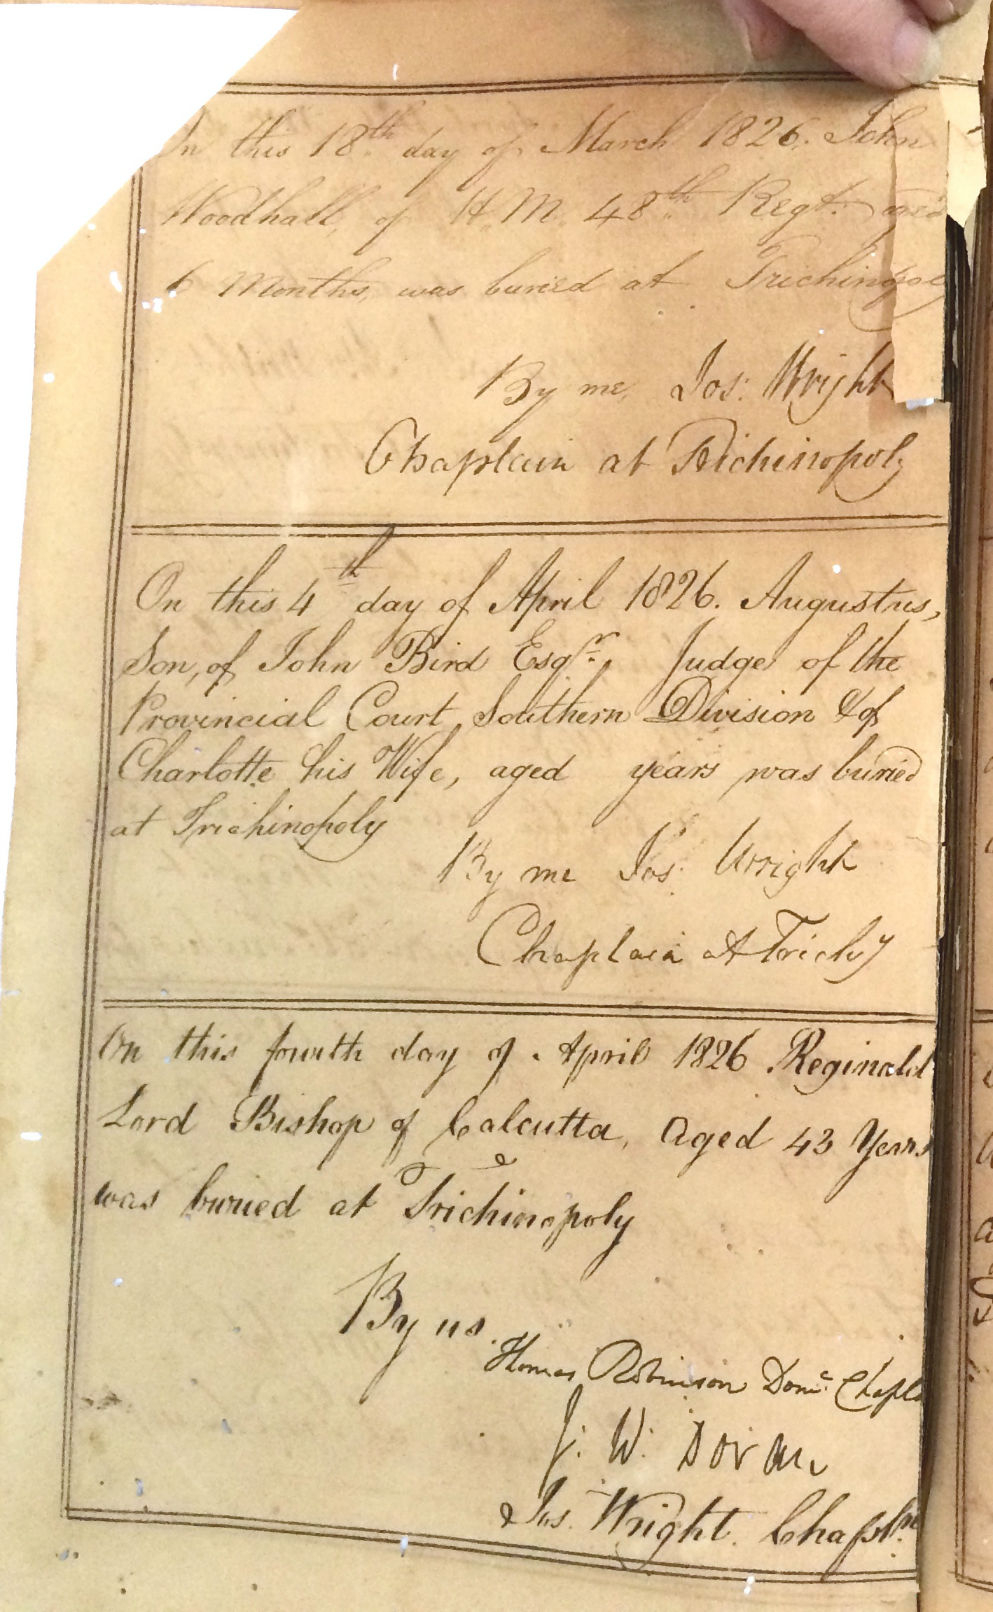 On this 18th day of March 1826. John
Woodhall, of H.M. 48th Regt. aged
6 Months, was buried at Trichinopoly
By me, Jos: Wright
Chaplain at Trichinopoly
On this 4th day of April 1826. Augustus,
Son, of John Bird Esqr., Judge of the
Provincial Court, Southern Division & of
Charlotte his Wife, aged years was buried
at Trichinopoly
By me Jos: Wright
Chaplain At Trichy
On this fourth day of April 1826 Reginald
Lord Bishop of Calcutta, Aged 43 Years
was buried at Trichinopoly
By us.
Thomas Robinson Domc. Chapl
J: W: Doran
& Jos. Wright. Chapln.